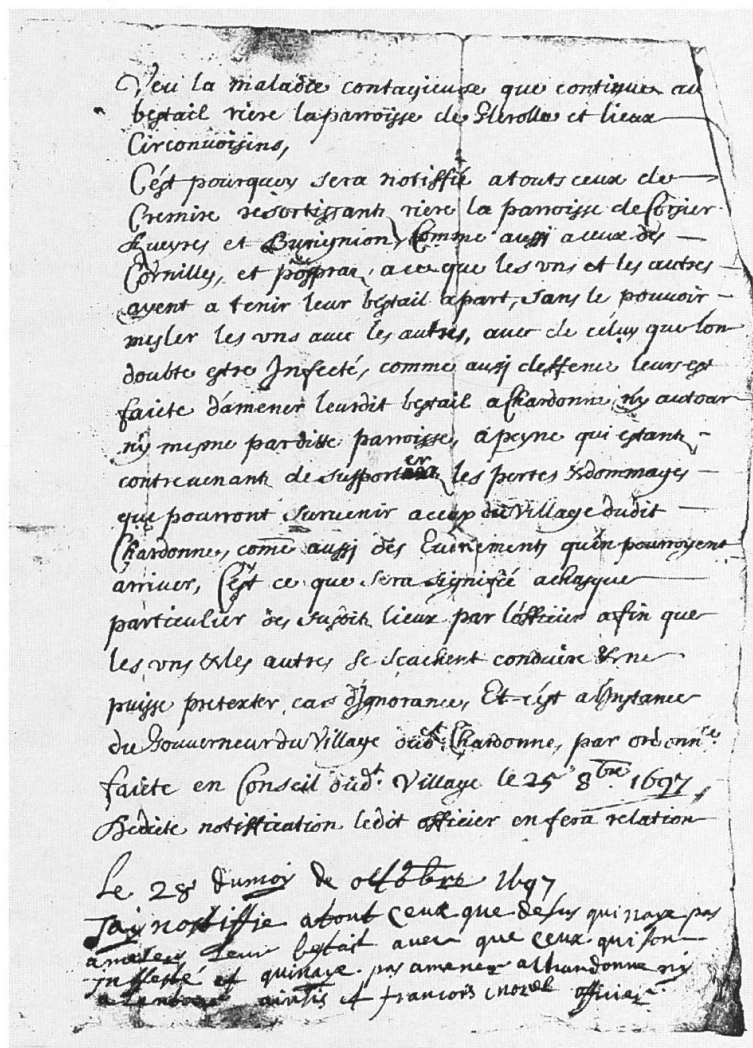 Veu la maladie contagieuse que continue au
bestail riere la parroisse de Glerolle et lieux
Circonvoisins,
C'est pourquoy sera notiffié a touts ceux de
Cremire resortissants riere la parroisse de Corsier
Queyres et Comme aussi a ceux des
Cornilles, et a ce que les uns et les autres
ayent a tenir leur bestail a part, sans le pouvoir
mesler les uns avec les autres, avec de céluy que lon
doubte estre Infecté, comme aussi deffence leurs est
faicte d'amener leurdit bestail a Chardonne ny autour
ny mesme par ditte parroisse, a peyne qui estants
contrevenants de supporter les pertes & dommages
que pourront survenir a ceux du Village dudit
Chardonne, come aussi des Evénements qu'en pourroyent
arriver, C'est ce que sera signifié a chasque
particulier des susdits lieux par l'officier afin que
les uns & les autres se scachent conduire & ne
puisse pretexter cas d'Ignorance, Et c'est a l'Instance
du Gouverneur du Village dud.t Chardonne, par ordonn.ce
faicte en Conseil dud.t Village le 25 8bre 1697
Dedicte notiffication ledit officier en fera relation
Le 28 du moy de octobre 1697
Jay nostiffie a tout ceux que desus qui naye pas
a leur bestail avec que ceux qui son
inffesté et qui naye pas amener a Chardonne ny
francois officier